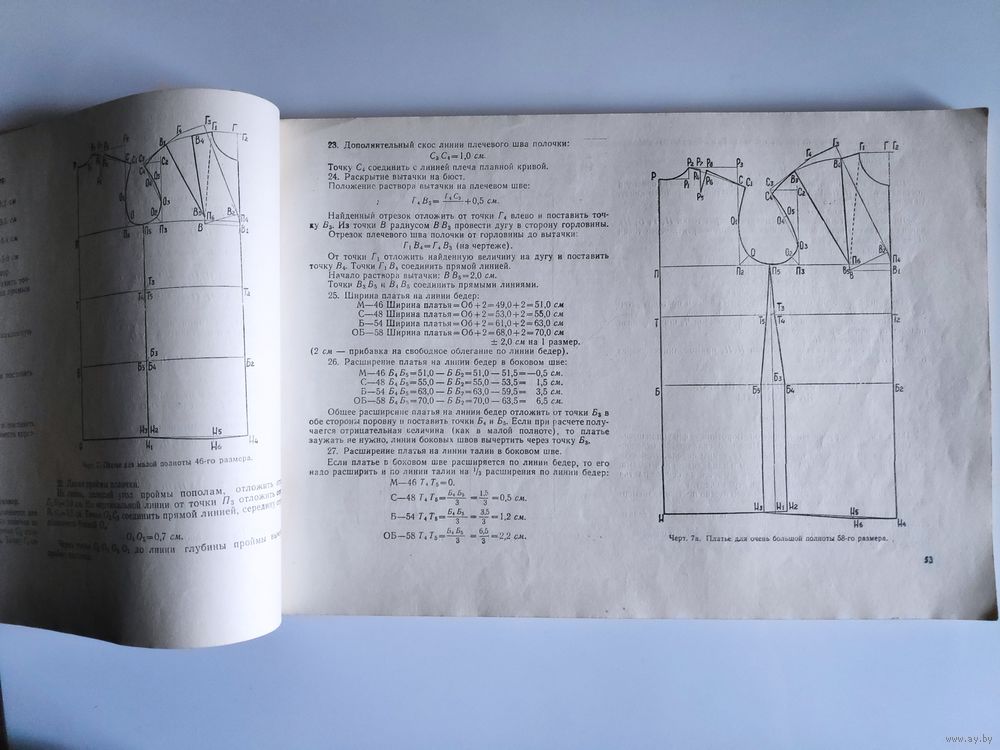 Черт. 7. Платье для малой полноты 46-го размера.
пополам, отложить от
вертикальной линии от точки П₃ отложить
соединить прямой линией, середину
O₄ O₅=0,7 см.
до линии глубины проймы
23. Дополнительный скос линии плечевого шва полочки:
С₃ С₄=1,0 см.
Точку С₄ соединить с линией плеча плавной кривой.
24. Раскрытие вытачки на бюст.
Положение раствора вытачки на плечевом шве:
Г₄ В₃= Г₄ С₃ +0,5 см.
Найденный отрезок отложить от точки Г₄ влево и поставить точ-
ку В₃. Из точки В радиусом В В₃ провести дугу в сторону горловины.
Отрезок плечевого шва полочки от горловины до вытачки:
Г₁ В₄=Г₄ В₃ (на чертеже).
От точки Г₁ отложить найденную величину на дугу и поставить
точку В₄. Точки Г₁ В₄ соединить прямой линией.
Начало раствора вытачки: В В₅=2,0 см.
Точки В₃ В₅ и В₄ В₅ соединить прямыми линиями.
25. Ширина платья на линии бедер:
М—46 Ширина платья=Об+2=49,0+2=51,0 см
С—48 Ширина платья=Об+2=53,0+2=55,0 см
Б—54 Ширина платья=Об+2=61,0+2=63,0 см
ОБ—58 Ширина платья=Об+2=68,0+2=70,0 см
± 2,0 см на 1 размер.
(2 см — прибавка на свободное облегание по линии бедер).
26. Расширение платья на линии бедер в боковом шве:
М—46 Б₄ Б₅=51,0—Б Б₂=51,0—51,5=—0,5 см.
С—48 Б₄ Б₅=55,0—Б Б₂=55,0—53,5= 1,5 см.
Б—54 Б₄ Б₅=63,0—Б Б₂=63,0—59,5= 3,5 см.
ОБ—58 Б₄ Б₅=70,0—Б Б₂=70,0—63,5= 6,5 см.
Общее расширение платья на линии бедер отложить от точки Б₃ в
обе стороны поровну и поставить точки Б₄ и Б₅. Если при расчете полу-
чается отрицательная величина (как в малой полноте), то платье
заужать не нужно, линии боковых швов вычертить через точку Б₃.
27. Расширение платья на линии талии в боковом шве.
Если платье в боковом шве расширяется по линии бедер, то его
надо расширить и по линии талии на ¹/₃ расширения по линии бедер:
М—46 Т₄ Т₅=0.
С—48 Т₄ Т₅= Б₄ Б₅/3 = 1,5/3 =0,5 см.
Б—54 Т₄ Т₅= Б₄ Б₅/3 = 3,5/3 =1,2 см.
ОБ—58 Т₄ Т₅= Б₄ Б₅/3 = 6,5/3 =2,2 см.
Р Р₂ Р₇ Р₈ Р₃
Р₁ Р₄ Р₆
Р₅
С С₁
С₃ С₄ В₃ С₂
Г₄ Г₃ Г₁ Г Г₂
В₄
О₁ О₄ О₅ О₃
О О₂
П П₂ П₅ П₃
В₅ В П₆ В₂ П₄ В₁
Т Т₅ Т₃ Т₄ Т₂
Б Б₅ Б₃ Б₄ Б₂
Н Н₃ Н₁ Н₂ Н₅ Н₆ Н₄
Черт. 7а. Платье для очень большой полноты 58-го размера.
53
www.ay.by